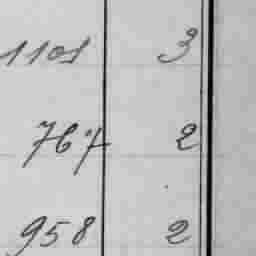 1101 3
767 2
958 2